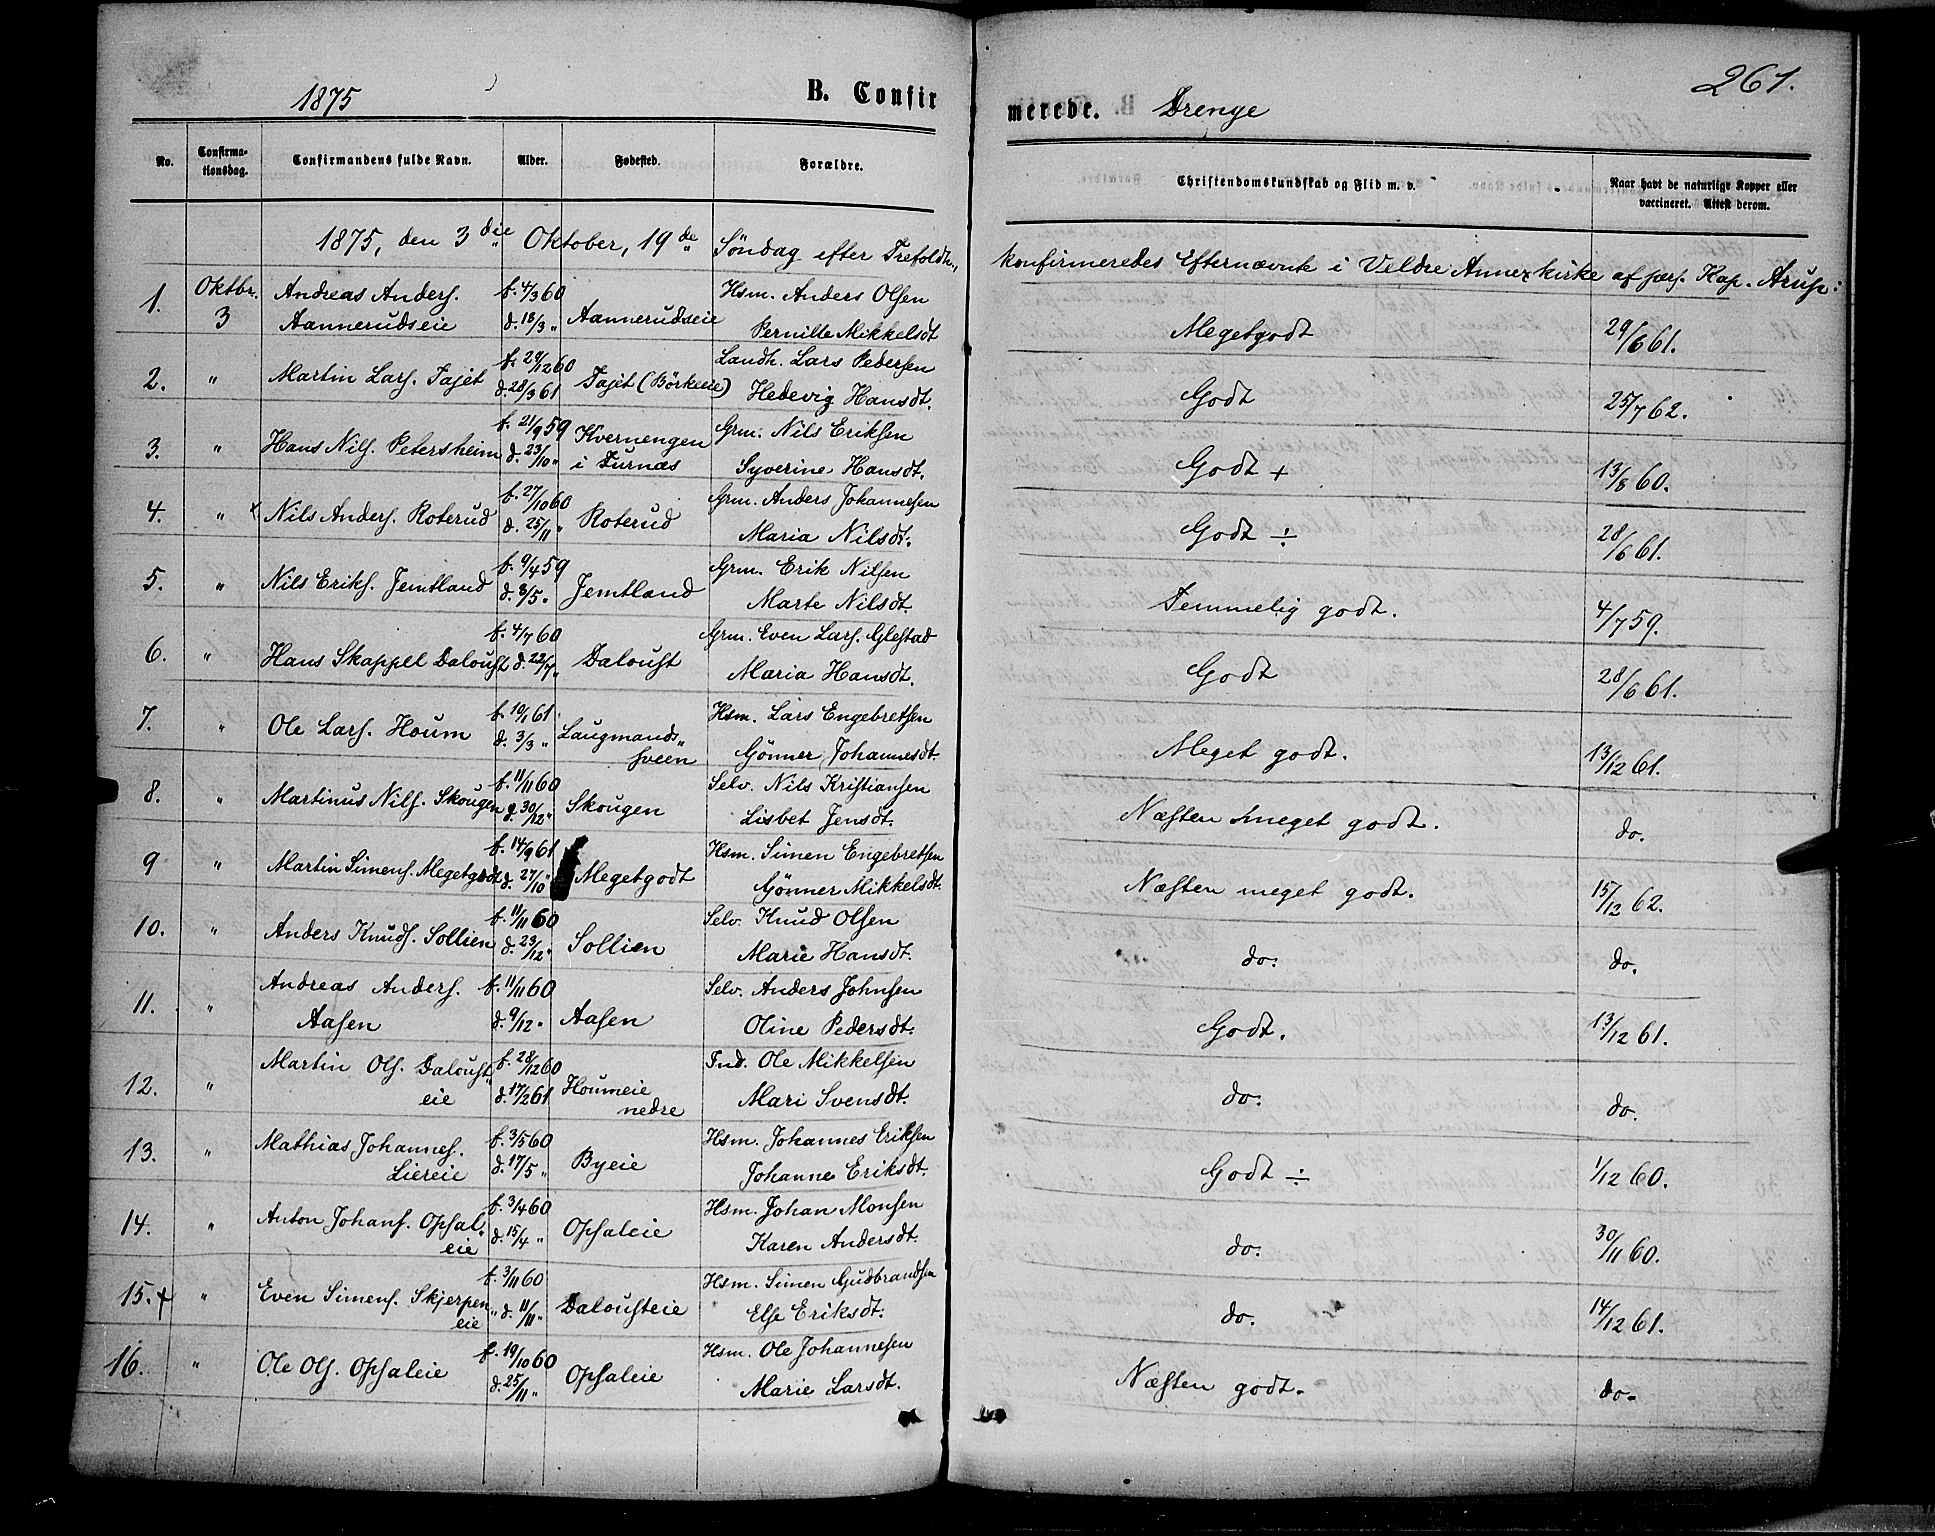 1875
B. Confir
merede.
Drenge
261.
No.
Confirma-
tionsdag.
Confirmandens fulde Navn.
Alder.
Fødested.
Forældre.
Christendomskundskab og Flid m. v.
Naar havt de naturlige Kopper eller
vaccineret. Attest derom.
1875, den 3die Oktober, 19de Søndag efter Trefoldh.,
konfirmeredes Efternævnte i Veldre Annexkirke af pers. Kap. Arup:
1. Oktbr. 3 Andreas Anders. Aannerudseie f. 4/3 60 d. 18/3 " Aannerudseie Hsm. Anders Olsen Pernille Mikkelsdt Megetgodt 29/6 61.
2. " Martin Lars. Tajet f. 29/12 60 d. 28/3 61 Tajet (Börkeeie) Landh. Lars Pedersen Hedevig Hansdt. Godt 25/7 62.
3. " Hans Nils. Petersheim f. 21/9 59 d. 23/10 " Kvernengen i Furnæs Grm. Nils Eriksen Syverine Hansdt. Godt + 13/8 60.
4. " x Nils Anders. Roterud f. 27/10 60 d. 25/11 " Roterud Grm. Anders Johannesen Maria Nilsdt. Godt ÷ 28/6 61.
5. " Nils Eriks. Jemtland f. 9/4 59 d. 8/5 " Jemtland Grm. Erik Nilsen Marte Nilsdt. Temmelig godt. 4/7 59.
6. " Hans Skappel Daloust f. 4/7 60 d. 22/7 " Daloust Grm. Even Lars. Glestad Maria Hansdt. Godt 28/6 61.
7. " Ole Lars. Houm f. 10/1 61 d. 3/3 " Laugmands" sveen Hsm. Lars Engebretsen Gönner Johannesdt. Meget godt. 13/12 61.
8. " Martinus Nils. Skougen f. 11/11 60 d. 30/12 " Skougen Selv. Nils Kristiansen Lisbet Jensdt. Næsten meget godt. do.
9 " Martin Simens. Megetgodt f. 14/9 61 d. 27/10 " Megetgodt Hsm. Simen Engebretsen Gönner Mikkelsdt. Næsten meget godt. 15/12 62.
10. " Anders Knuds. Sollien f. 11/11 60 d. 23/12 " Sollien Selv. Knud Olsen Marie Hansdt. do. do.
11. " Andreas Anders. Aasen f. 11/11 60 d. 9/12 " Aasen Selv. Anders Johnsen Oline Pedersdt. Godt. 13/12 61.
12. " Martin Ols. Daloust" eie f. 28/12 60 d. 17/2 61 Houmeie nedre Ind. Ole Mikkelsen Mari Svensdt. do. do.
13. " Mathias Johannes. Liereie f. 3/5 60 d. 17/5 " Byeie Hsm. Johannes Eriksen Johanne Eriksdt. Godt ÷ 1/12 60.
14. " Anton Johans. Opsal" eie f. 3/4 60 d. 15/4 " Opsaleie Hsm. Johan Monsen Karen Andersdt. do. 30/11 60.
15. + " Even Simens. Skjerpen" eie f. 3/11 60 d. 11/11 " Dalousteie Hsm. Simen Gudbrandsen Else Eriksdt. do. 14/12 61.
16. " Ole Ols. Opsaleie f. 19/10 60 d. 25/11 " Opsaleie Hsm. Ole Johannesen Marie Larsdt. Næsten godt. do.